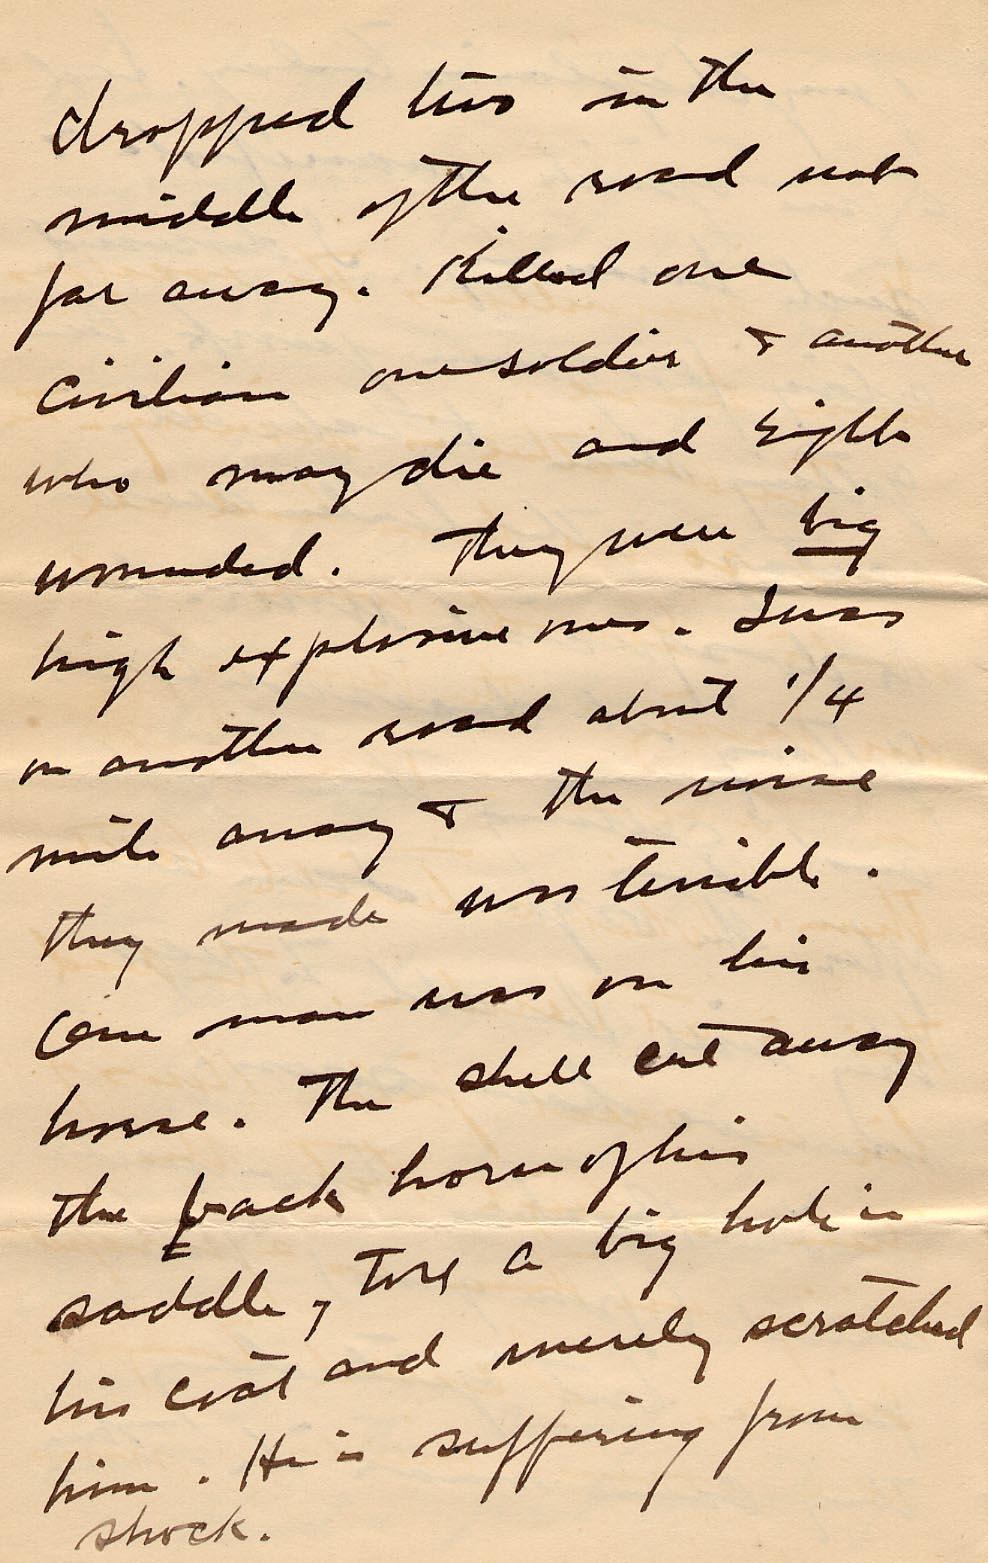 dropped two in the
middle of the road not
far away. Killed one
civilian one soldier & another
who may die and eight
wounded. They were big
high explosive ones. I was
on another road about 1/4
mile away & the noise
they made was terrible.
One man was on his
horse. The shell cut away
the back horn of his
saddle, tore a big hole in
his coat and merely scratched
him. He is suffering from
shock.